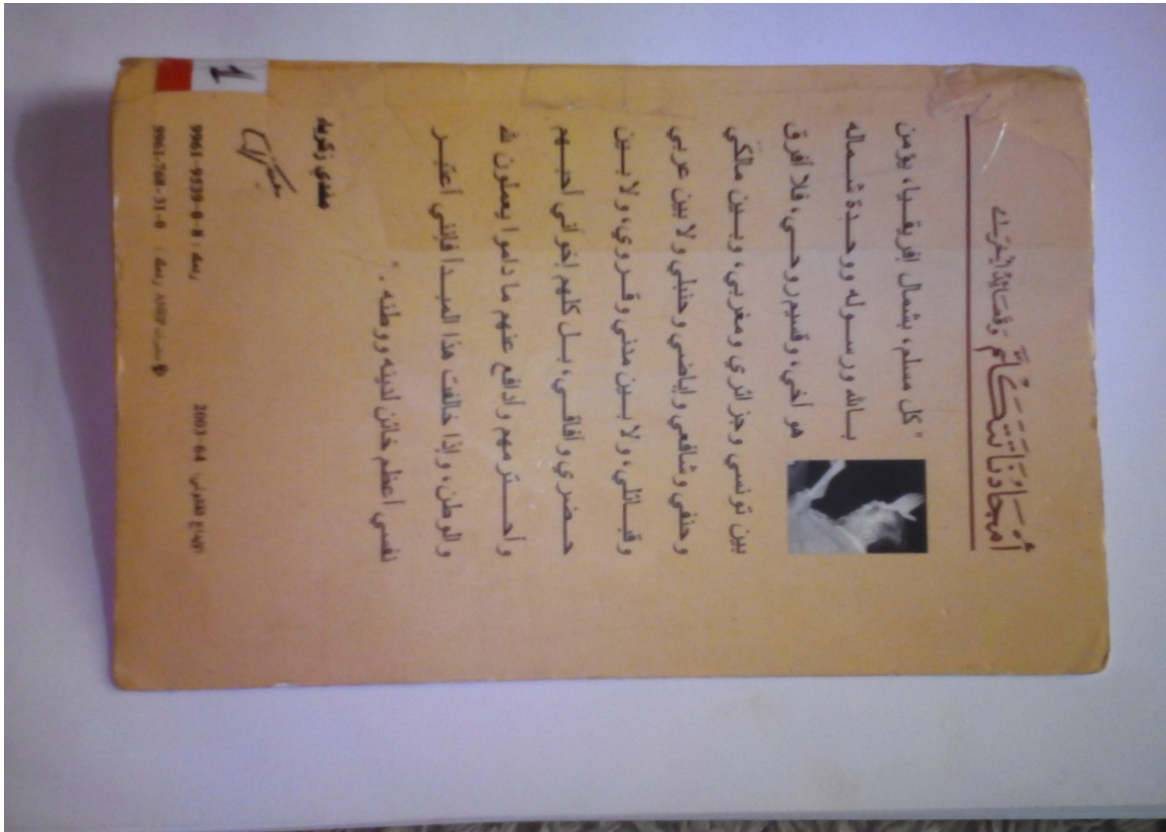 أمجادنا تتكلم وقصائد أخرى
" كل مسلم، بشمال إفريقيا، يؤمن
بالله ورسوله ووحدة شماله
هو أخي، وقسيم روحي، فلا أفرق
بين تونسي وجزائري ومغربي، وبين مالكي
وحنفي وشافعي وإباضي وحنبلي ولا بين عربي
وقبائلي، ولا بين مدني وقروي، ولا بين
حضري وآفاقي، بل كلهم إخواني أحبهم
وأحترمهم وأدافع عنهم ما داموا يعملون لله
والوطن، وإذا خالفت هذا المبدأ فإنني أعتبر
نفسي أعظم خائن لدينه ووطنه . "
مفدي زكرياء
1
ردمك : 8-0-9339-9961
الإيداع القانوني 64-2003
منشورات ANEP ردمك : 0-31-768-9961